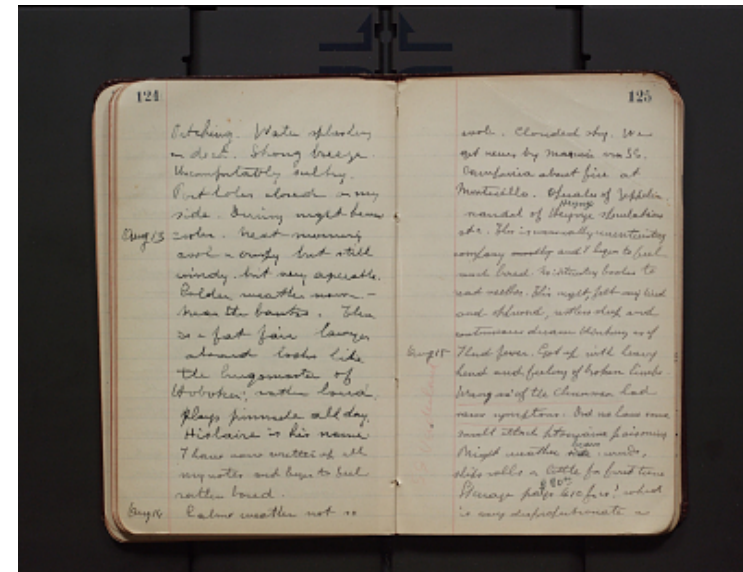 124
Pitching. Water splashing
on deck. Strong breeze.
Uncomfortably sultry.
Port holes closed on my
side. During night became
Aug 13 cooler. Next morning
cool & cloudy but still
windy but very agreeable.
Colder weather now —
near the banks. There
is a fat fair lawyer
aboard looks like
the burgomaster of
Hoboken; rather loud,
plays pinnacle all day.
Hislaire is his name
I have now written up all
my notes and begin to feel
rather bored.
Aug 14 Calm weather not so
125
cool. Clouded sky. We
get news by Marconi via SS.
Campania about fire at
Monticello. of Zeppelin
scandal of speculations
etc. This is unusually uninteresting
company mostly and I begin to feel
much bored. No interesting books to
read neither. This night felt very tired
and restless sleep and
continuous dream thinking as if
Aug 15 I had fever. Got up with heavy
head and feeling of broken limbs.
of the had
same symptoms. Did we have some
small attack ptomaine poisoning
Bright weather winds,
ship rolls a little for first time
Steerage which
is very disproportionate a